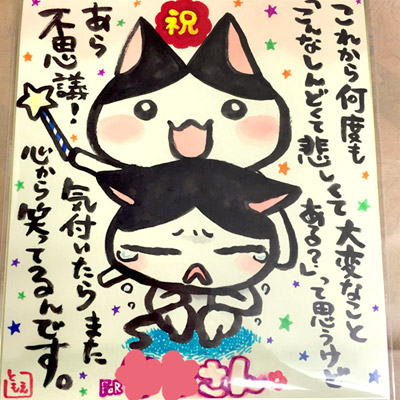 祝
これから何度も
「こんなしんどくて悲しくて大変なこと
ある?」って思うけど
あら
不思議!
気付いたらまた
心から笑ってるんです。
FOR
さん。
ともえ